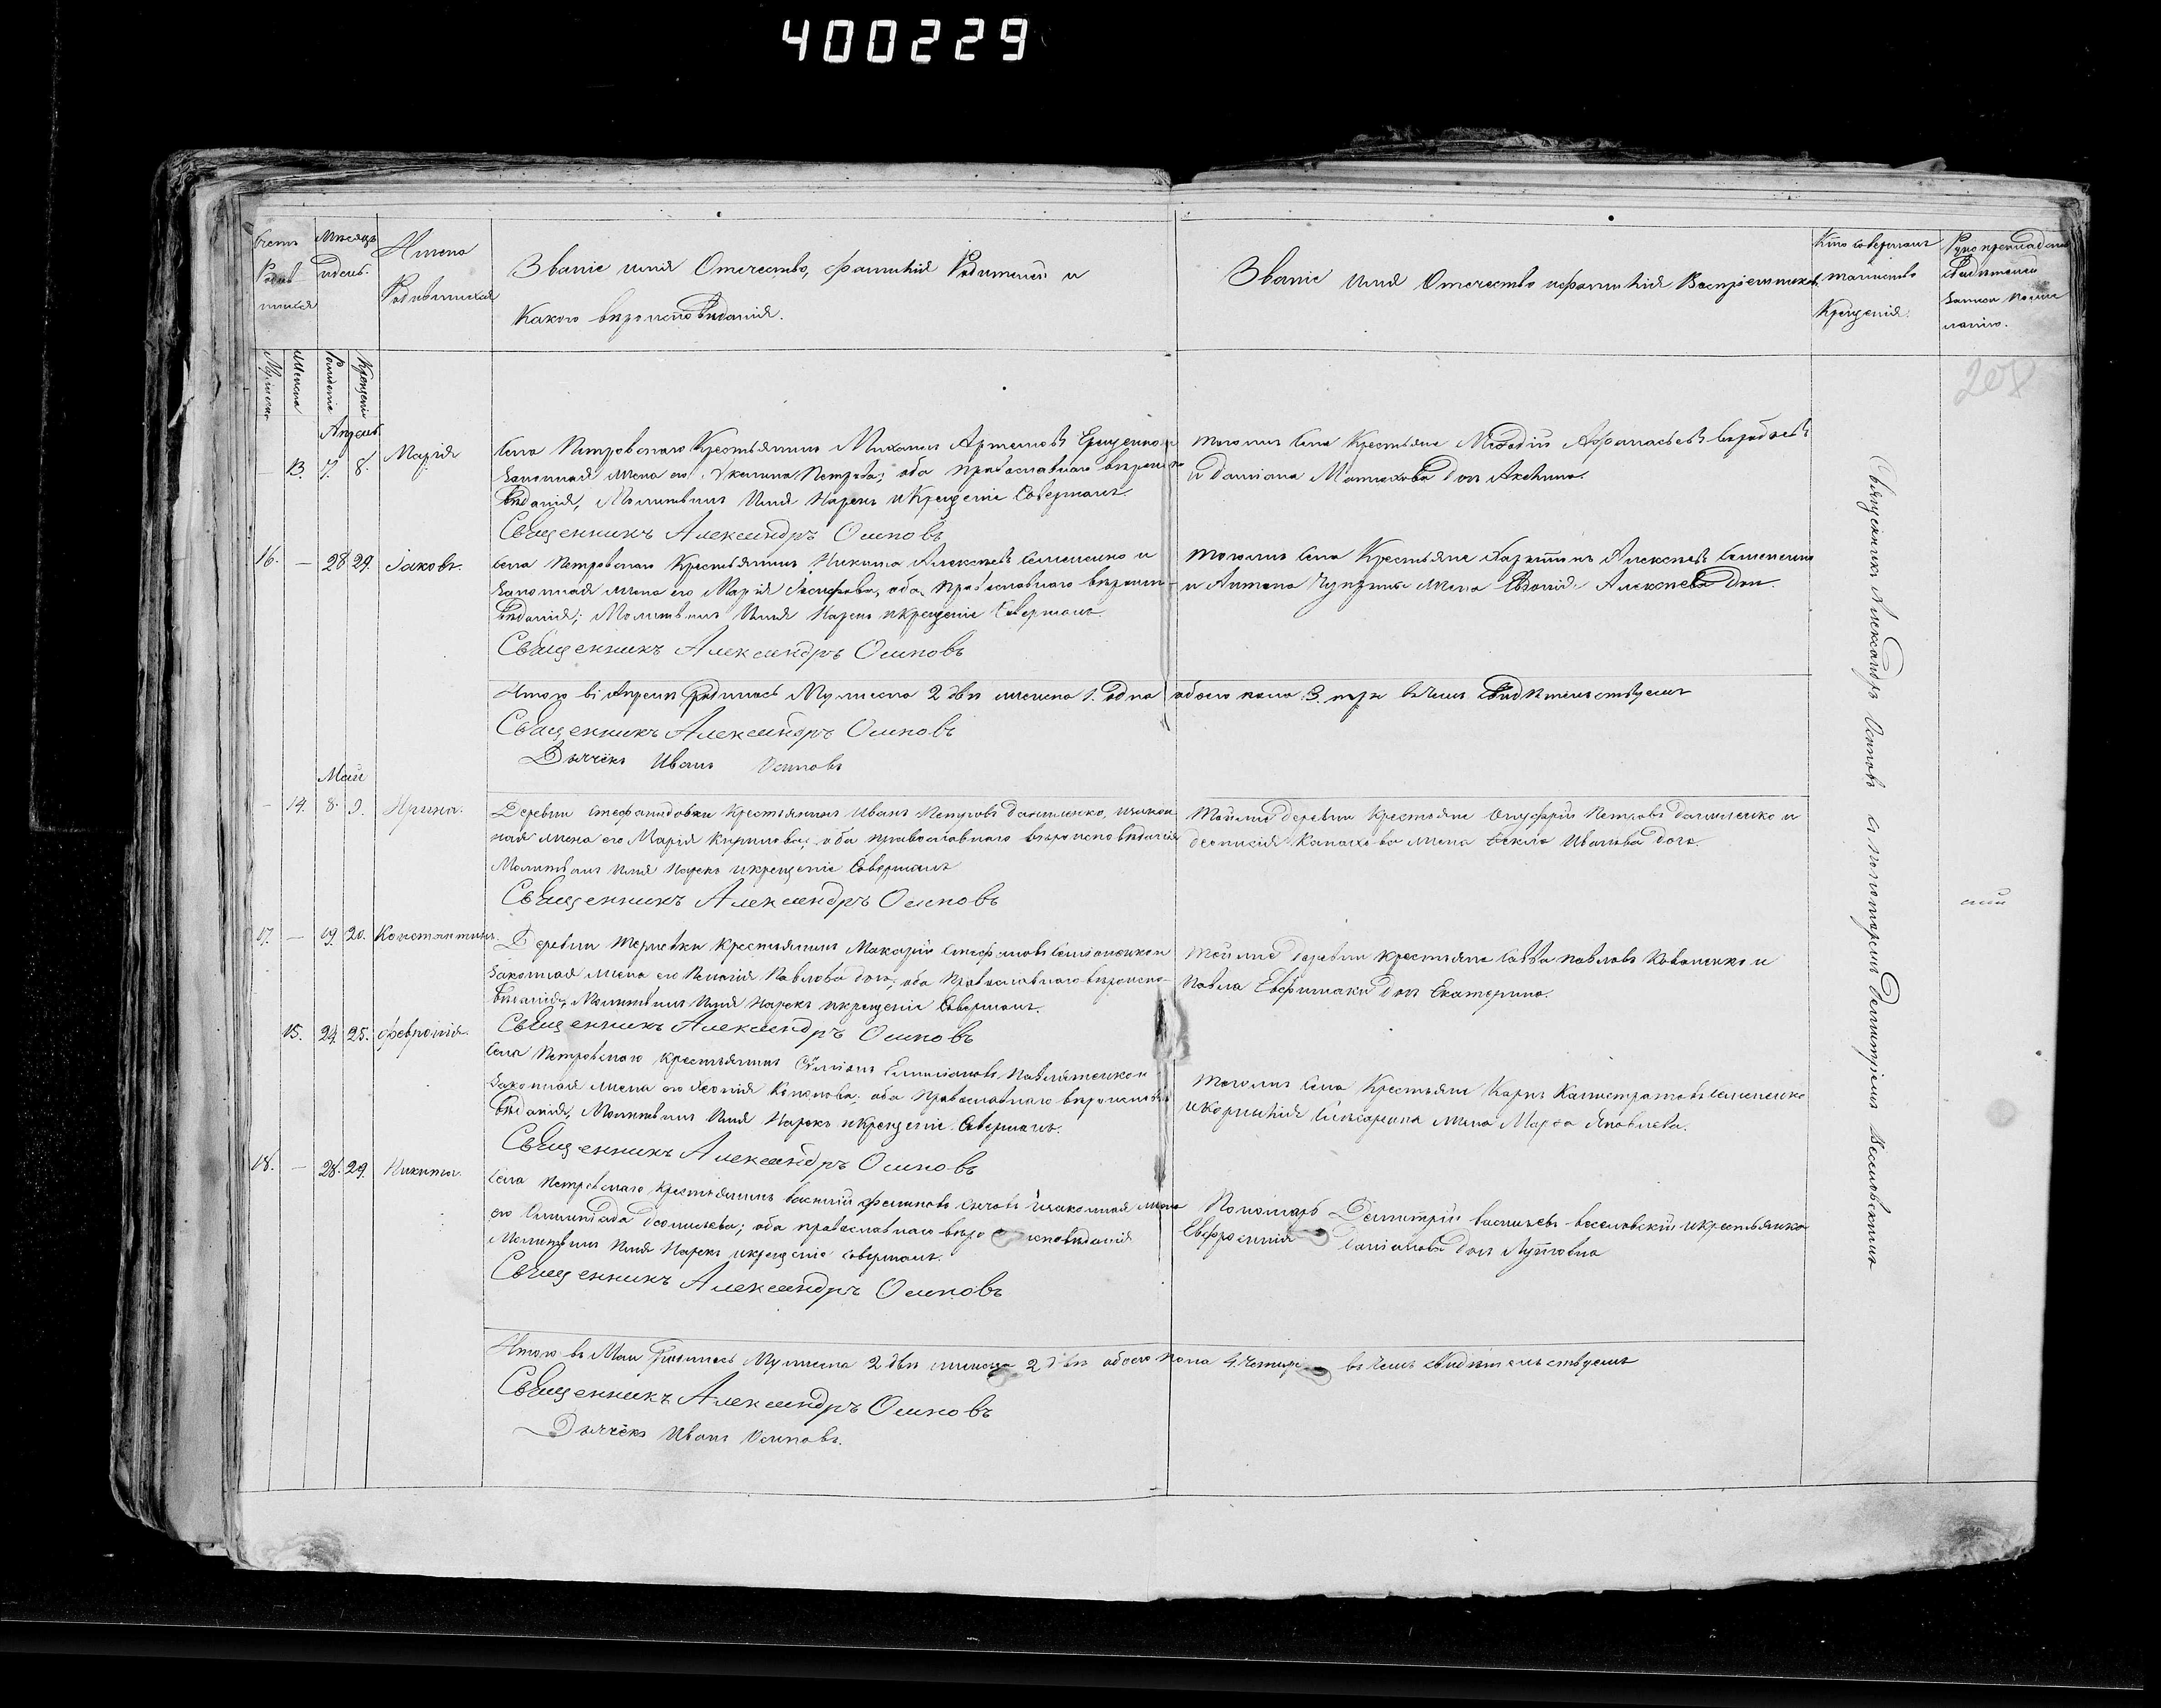 400229
Счетъ
Родив
шихся
Мѣсяцъ
и день.
Имена
Родившихся
Званіе имя Отечество, фамилія Родителей и
Какого вѣроисповѣданія.
Званіе имя Отечество и фамилія Воспріемниковъ.
Кто совершалъ
таинство
Крещенія.
Рукоприкладство
свидѣтелей
записи по жела
нію.
Мужеска
Женска
Рожденіе
Крещеніе
208
Апрель
— 13. 7. 8. Марія
Села Петровскаго Крестьянинъ Михаилъ Артемовъ Ерещенко и
законная жена его Акилина Петрова; оба православнаго вѣроиспо
вѣданія, Молитвилъ Имя Нарекъ и Крещеніе Совершалъ
Священникъ Александръ Осиповъ
тогожъ Села Крестьяне Меѳодій Афанасьевъ
и Даміана дочь Акилина.
16. — 28 29. Іаковъ.
Села Петровскаго Крестьянинъ Никита Алексѣевъ Семененко и
законная жена его Марія Іосифова, оба Православнаго вѣроиспо-
вѣданія; Молитвилъ Имя Нарекъ и крещеніе Совершалъ
Священникъ Александръ Осиповъ
тогожъ Села Крестьяне Алексѣевъ Семененко
и Антона жена Евдокія Алексѣева дочь.
Итого въ Апрелѣ родилось Мужеска 2 два женска 1. одна обоего пола 3. три въ чемъ свидѣтельствуемъ
Священникъ Александръ Осиповъ
Дьячёкъ Иванъ Осиповъ
Май
— 14. 8. 9. Ирина.
Деревни Стефанидовки Крестьянинъ Иванъ Петровъ Даниленко, и закон
ная жена его Марія Кирилова; оба православнаго вѣроисповѣданія
Молитвилъ имя Нарекъ и крещеніе Совершалъ
Священникъ Александръ Осиповъ
Тойжде деревни Крестьяне Онуфрій Петровъ Даниленко и
Діонисія жена Ѳекла Иванова дочь.
17. — 19. 20. Константинъ.
Деревни Крестьянинъ Макарій Стефановъ и
законная жена его Пелагія Павлова дочь, оба Православнаго вѣроиспо-
вѣданія, Молитвилъ Имя Нарекъ и крещеніе Совершалъ.
Священникъ Александръ Осиповъ
Тойжде деревни Крестьяне Савва Павловъ Коваленко и
Павла дочь Екатерина.
15. 24. 25. Февронія.
Села Петровскаго Крестьянинъ Емиліановъ и
законная жена его Кононова; оба Православнаго вѣроиспо
вѣданія, Молитвилъ Имя Нарекъ и Крещеніе Совершалъ.
Священникъ Александръ Осиповъ
тогожъ Села Крестьяне Карпъ Калистратовъ Семененко
и Корнилія жена Марѳа Яковлева.
18. — 28. 29. Никита.
Села Петровскаго Крестьянинъ Василій и законная жена
его Олимпіада; оба православнаго вѣроисповѣданія
Молитвилъ Имя Нарекъ и крещеніе совершалъ.
Священникъ Александръ Осиповъ
Пономарь Димитрій Васильевъ Веселовскій и крестьянка
Евфросинія дочь
Итого въ Маи родилось Мужеска 2 два женска 2 двѣ обоего пола 4 четыре въ чемъ свидѣтельствуемъ
Священникъ Александръ Осиповъ
Дьячёкъ Иванъ Осиповъ.
Священникъ Александръ Осиповъ съ пономаремъ Димитріемъ Веселовскимъ